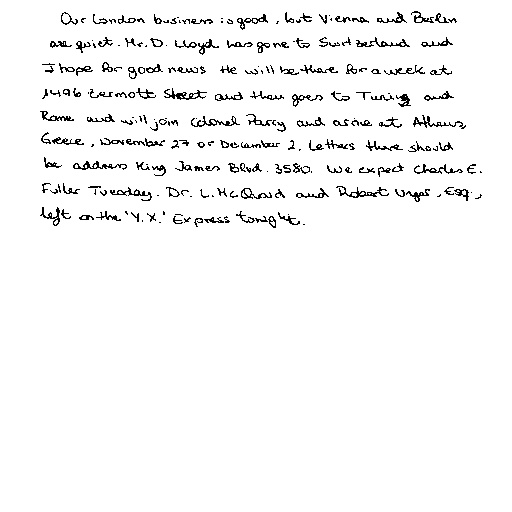 Our London business is good, but Vienna and Berlin
are quiet. Mr. D. Lloyd has gone to Switzerland and
I hope for good news He will be there for a week at
1496 Zermott Street and then goes to Turing and
Rome and will join Colonel Parry and arrive at Athens,
Greece, November 27 or December 2. Letters there should
be address King James Blvd. 3580. We expect Charles E.
Fuller Tuesday. Dr. L. McQuaid and Robert Unger, Esq.,
left on the "Y.X." Express tonight.